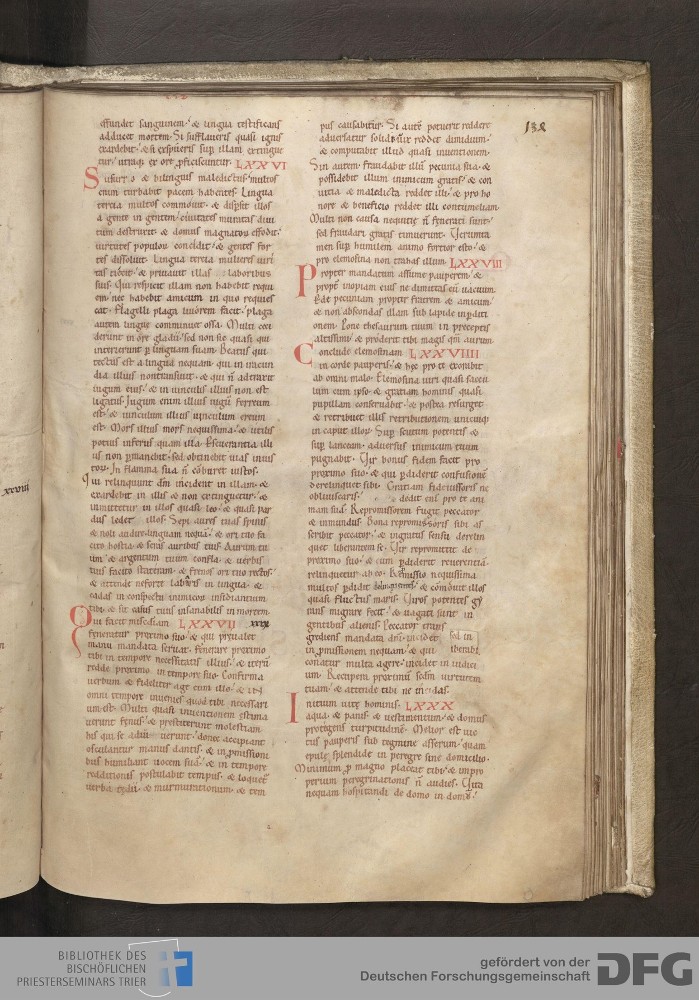 effundet sanguinem · & lingua testificans
adducet mortem. Si sufflaveris quasi ignis
exardebit · & si expueris sup illam extingue
tur · utraq; ex ore pficiscuntur. LXXVI
Susurro & bilinguis maledictus · multos
enim turbabit pacem habentes. Lingua
tercia multos commovit · & dispsit illos
a gente in gentem · civitates muratas divi
tum destruxit · & domus magnatoru effodit ·
virtutes populoru concidit · & gentes for
tes dissolvit. Lingua tercia mulieres viri
tis eiecit · & privavit illas laboribus
suis. Qui respicit illam non habebit requi
em · nec habebit amicum in quo requies
cat. Flagelli plaga livorem facit · plaga
autem lingue comminuet ossa. Multi ceci
derunt in ore gladii · sed non sic quasi qui
interierunt p linguam suam. Beatus qui
tectus est a lingua nequam · qui in iracun
dia illius non transivit · & qui n attraxit
iugum eius · & in vinculis illius non est
ligatus. Iugum enim illius iugu ferreum
est · & vinculum illius vinculum ereum
est. Mors illius mors nequissima · & utilis
potius inferus quam illa. Pseverantia illi
us non pmanebit · sed obtinebit vias inius
toru. In flamma sua n coburet iustos.
Qui relinquunt dm incident in illam · &
exardebit in illis & non extinguetur · &
inmittetur in illos quasi leo · & quasi par
dus ledet illos. Sepi aures tuas spinis
& noli audire linguam nequa · & ori tuo fa
cito hostia · & seras auribus tuis. Aurum tu
um & argentum tuum confla · & verbis
tuis facito stateram · & frenos ori tuo rectos ·
& attende ne forte labaris in lingua · &
cadas in conspectu inimicoru insidiantium
tibi · & sit casus tuus insanabilis in mortem.
Qui facit misediam LXXVII xxix
feneratur proximo suo · & qui prevalet
manu mandata servat. Fenerare proximo
tibi in tempore necessitatis illius · & iteru
redde proximo in tempore suo. Confirma
verbum & fideliter age cum illo · & in
omni tempore invenies quod tibi necessari
um est. Multi quasi inventionem estima
verunt fenus · & prestiterunt molestiam
his qui se adiuverunt · donec accipiant
osculantur manus dantis · & in pmissioni
bus humiliant vocem sua · & in tempore
redditionis postulabit tempus · & loquet
verba tedii · & murmurationum · & tem
138
pus causabitur. Si aute potuerit reddere
adversatur · solidi vix reddet dimidium ·
& computabit illud quasi inventionem.
Sin autem fraudabit illu pecunia sua · &
possidebit illum inimicum gratis · & con
vitia & maledicta reddet illi · & pro ho
nore & beneficio reddet illi contumeliam.
Multi non causa nequitie n fenerati sunt ·
sed fraudari gratis timuerunt. Verumta
men sup humilem animo fortior esto · &
pro elemosina non trahas illum. LXXVIII
Propter mandatum assume pauperem · &
propt inopiam eius ne dimittas eu vacuum.
Pde pecuniam propter fratrem & amicum ·
& non abscondas illam sub lapide in pditi
onem. Pone thesaurum tuum in preceptis
altissimi · & proderit tibi magis qm aurum.
Conclude elemosinam LXXVIIII
in corde pauperis · & hec pro te exorabit
ab omni malo. Elemosina viri quasi saccu
lum cum ipso · & gratiam hominis quasi
pupillam conservabit · & postea resurget ·
& retribuet illis retributionem unicuiq;
in caput illoru. Sup scutum potentis &
sup lanceam · adversus inimicum tuum
pugnabit. Vir bonus fidem facit pro
proximo suo · & qui pdiderit confusione
derelinquet sibi. Gratiam fideiussoris ne
obliviscaris · dedit eni pro te ani
mam sua. Repromissorem fugit peccator
& inmundus. Bona repromissoris sibi as
scribit peccator · & ingratus sensu derelin
quet liberantem se. Vir repromittit de
proximo suo · & cum pdiderit reverentia
relinquetur ab eo. Repmissio nequissima
multos pdidit dirigentes · & comovit illos
quasi fluctus maris. Viros potentes gy
rans migrare fecit · & vagati sunt in
gentibus alienis. Peccator trans
grediens mandata dni · incidet sed in
in pmissionem nequam · & qui
conatur multa agere · incidet in iudici
um. Recupera proximu scdm virtutem
tuam · & attende tibi ne incidas.
Initium vite hominis · LXXX
aqua · & panis · & vestimentum · & domus
protegens turpitudine. Melior est vic
tus pauperis sub tegmine asserum · quam
epule splendide in peregre sine domicilio.
Minimum p magno placeat tibi · & impro
perium peregrinationis n audies. Vita
nequam hospitandi de domo in domu ·
xxviii
BIBLIOTHEK DES
BISCHÖFLICHEN
PRIESTERSEMINARS TRIER
gefördert von der
Deutschen Forschungsgemeinschaft DFG